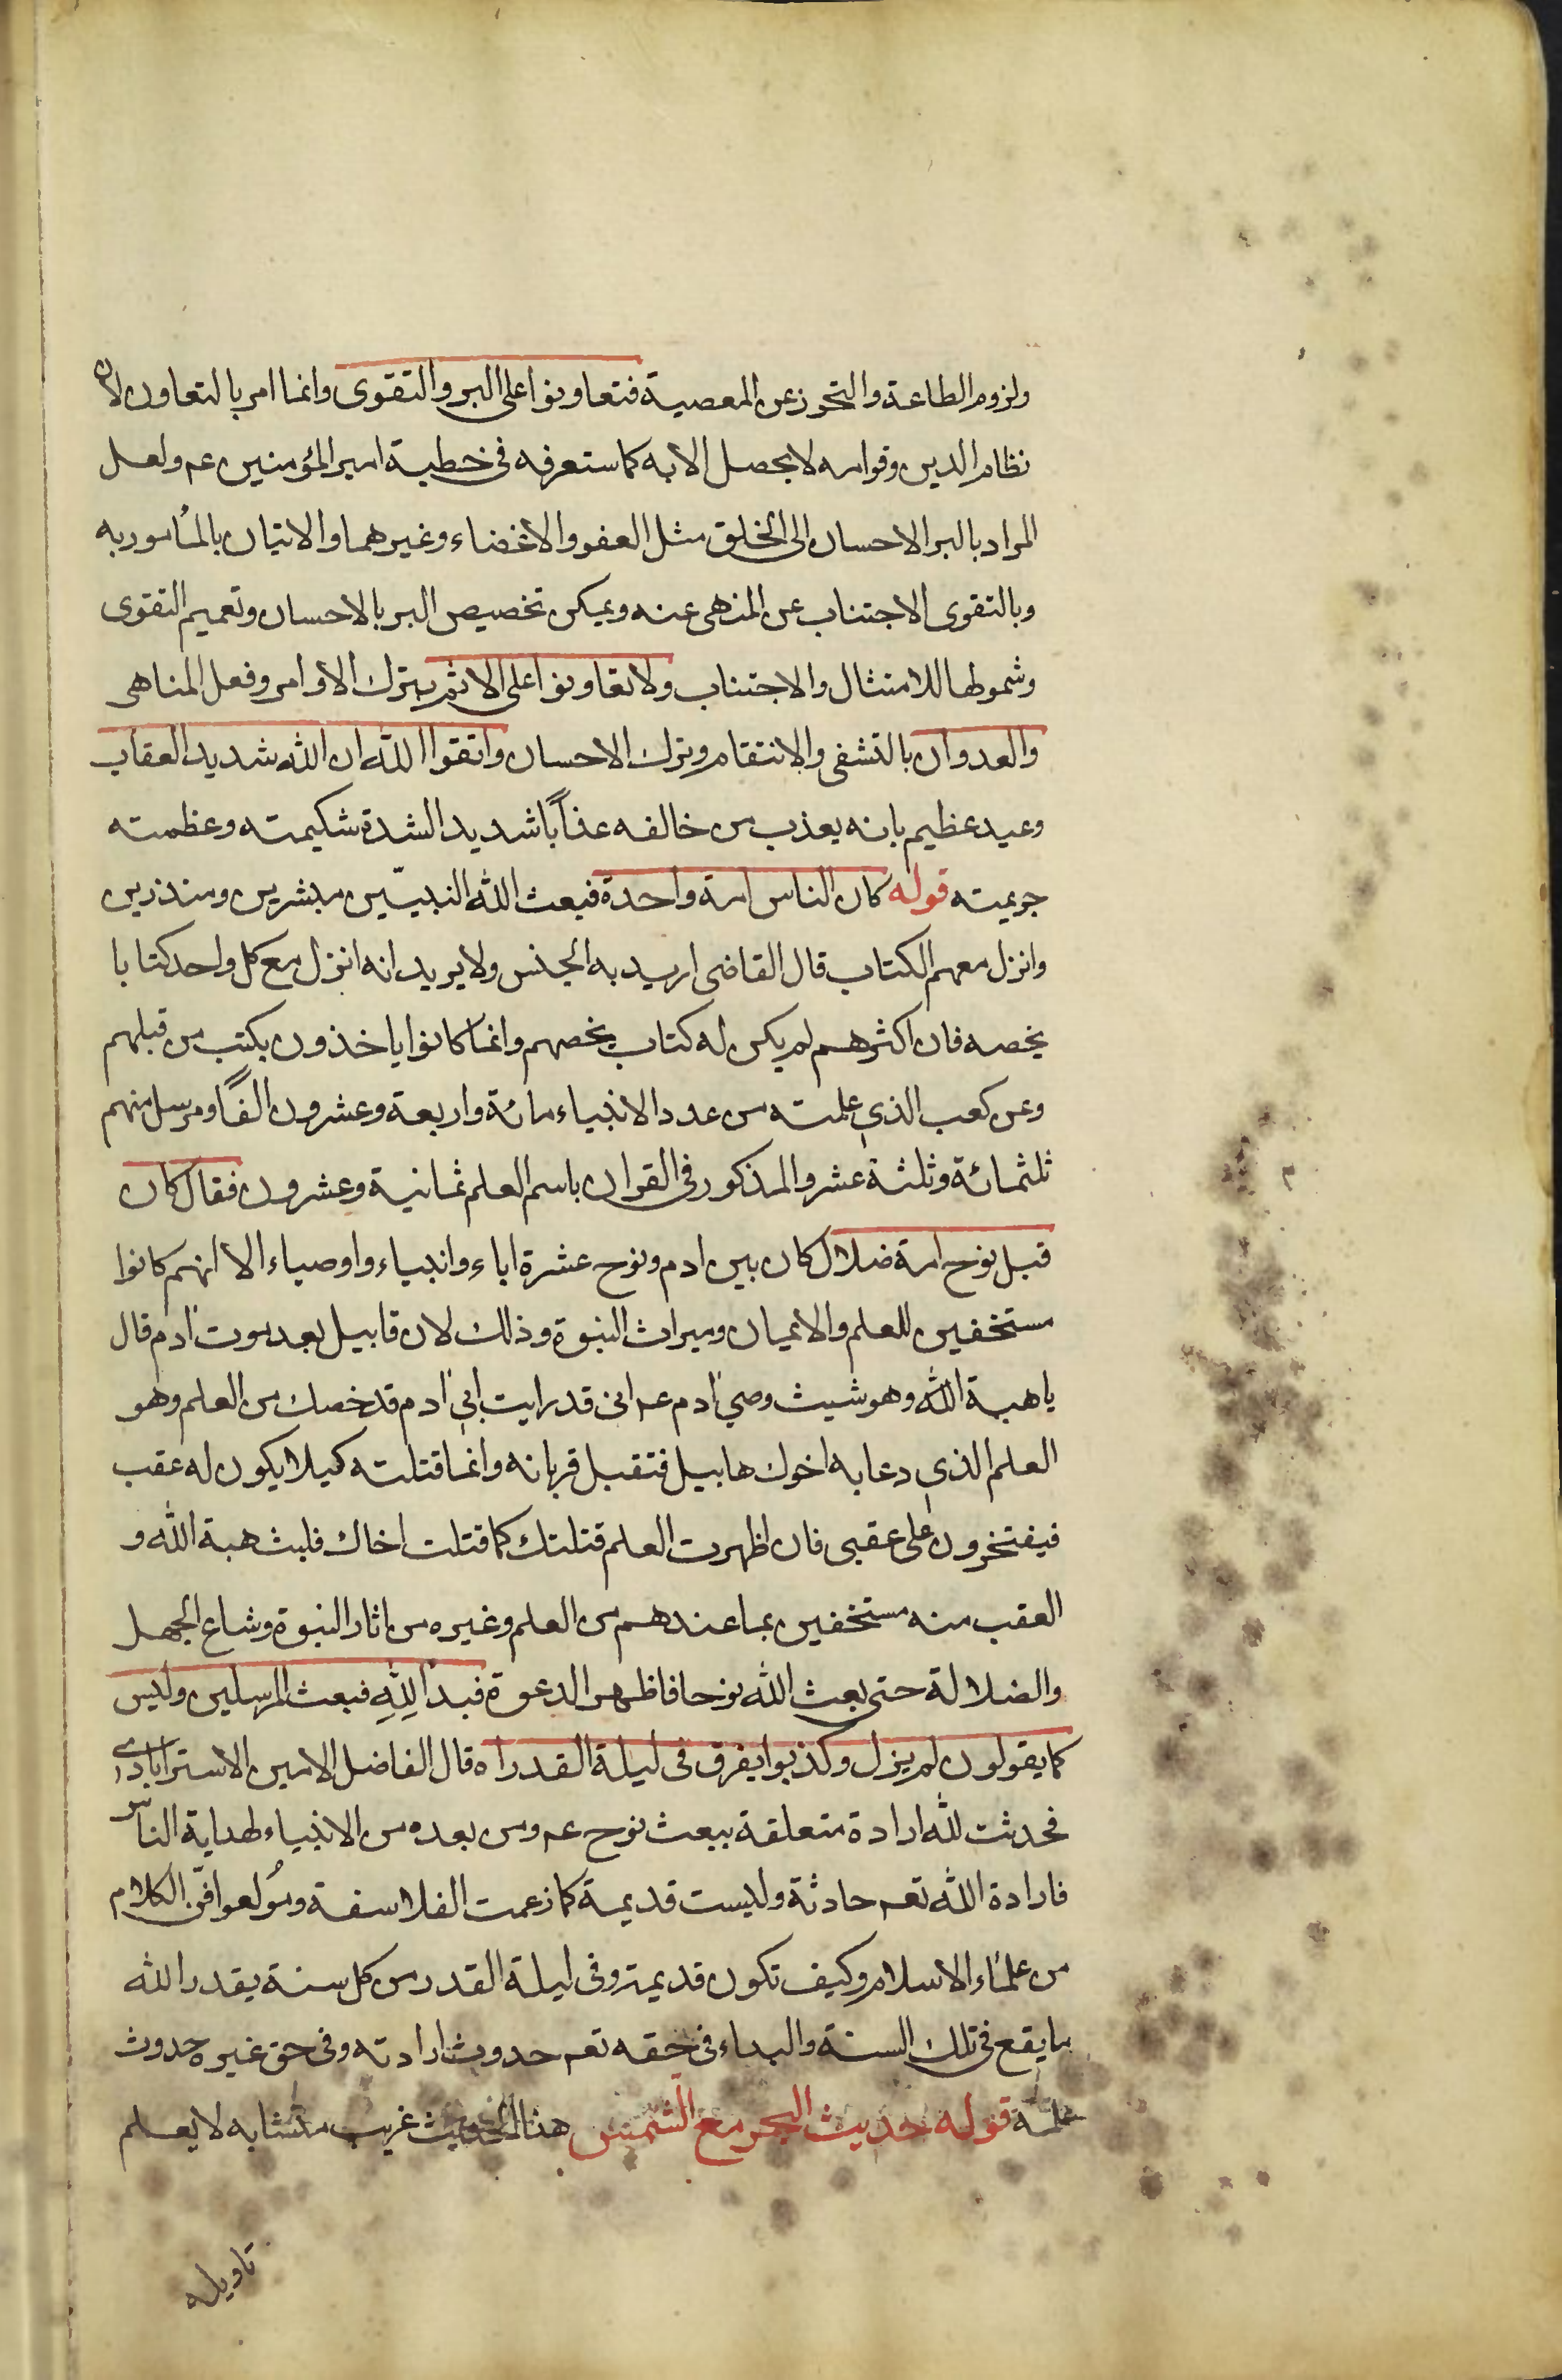 ولزوم الطاعة والتحرز عن المعصية فتعاونوا على البر والتقوى وانما امر بالتعاون لان
نظام الدين وقوامه لا يحصل الا به كما ستعرفه فى خطبة امير المؤمنين عم ولعل
المراد بالبر الاحسان الى الخلق مثل العفو والاغضاء وغيرهما والاتيان بالمأمور به
وبالتقوى الاجتناب عن المنهى عنه ويمكن تخصيص البر بالاحسان وتعميم التقوى
وشمولها للامتثال والاجتناب ولا تعاونوا على الاثم بترك الاوامر وفعل المناهى
والعدوان بالتشفى والانتقام وترك الاحسان واتقوا الله ان الله شديد العقاب
وعيد عظيم بانه يعذب من خالفه عذاباً شديد الشدة شكيمته وعظمته
جريمته قوله كان الناس امة واحدة فبعث الله النبيّين مبشرين ومنذرين
وانزل معهم الكتاب قال القاضى اريد به الجنس ولا يريد انه انزل مع كل واحد كتابا
يخصه فان اكثرهم لم يكن له كتاب يخصهم وانما كانوا ياخذون بكتب من قبلهم
وعن كعب الذي علمته من عدد الانبياء مائة واربعة وعشرون الفاً ومرسل منهم
ثلثمائة وثلثة عشر والمذكور فى القران باسم العلم ثمانية وعشرون فقال كان
قبل نوح امة ضلال كان بين ادم ونوح عشرة اباء وانبياء واوصياء الا انهم كانوا
مستخفين للعلم والايمان وميراث النبوة وذلك لان قابيل بعد موت ادم قال
يا هبة الله وهو شيث وصي ادم عم انى قد رايت ابي ادم قد خصك من العلم وهو
العلم الذي دعا به اخوك هابيل فتقبل قربانه وانما قتلته كيلا يكون له عقب
فيفتخرون على عقبى فان اظهرت العلم قتلتك كما قتلت اخاك فلبث هبة الله و
العقب منه مستخفين بما عندهم من العلم وغيره من اثار النبوة وشاع الجهل
والضلالة حتى بعث الله نوحا فاظهر الدعوة فبدا لِلّٰهِ فبعث المرسلين وليس
كما يقولون لم يزل وكذبوا يفرق فى ليلة القدر اه قال الفاضل الامين الاسترابادي
فحدثت لله ارادة متعلقة ببعث نوح عم ومن بعده من الانبياء لهداية الناس
فارادة الله تعم حادثة وليست قديمة كما زعمت الفلاسفة ومُولعوا فن الكلام
من علماء الاسلام وكيف تكون قديمة وفى ليلة القدر من كل سنة يقدر الله
ما يقع فى تلك السنة والبداء فى حقه تعم حدوث ارادته وفى حق غيره حدوث
علمه قوله حديث البحر مع الشمس هذا الحديث غريب متشابه لا يعلم
تاويله